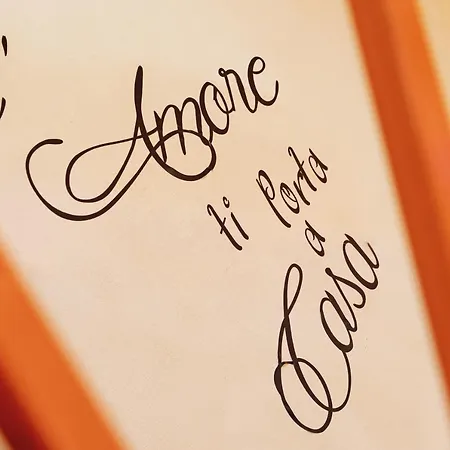 Amore
ti Porta
a
Casa